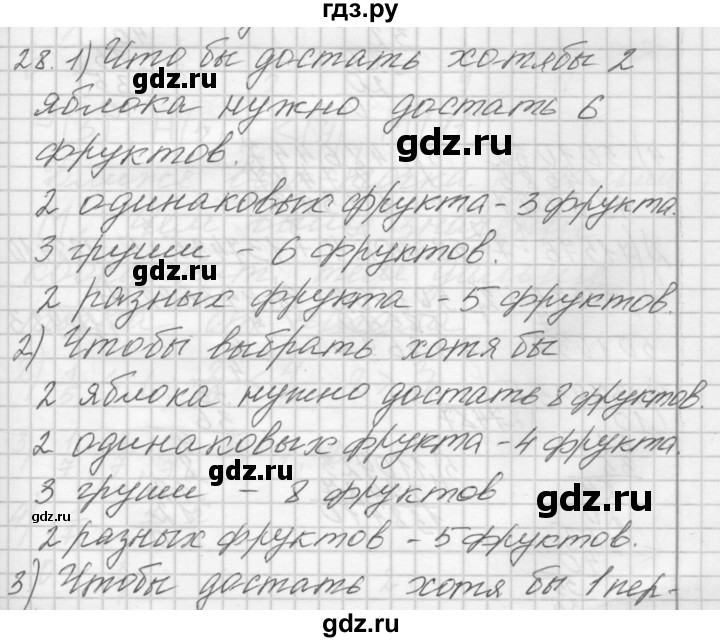 гдз.ру
28. 1) Что бы достать хотябы 2
gdz.ru
яблока нужно достать 6
gdz.ru
фруктов.
2 одинаковых фрукта - 3 фрукта.
3 груши - 6 фруктов.
gdz.ru
2 разных фрукта - 5 фруктов.
2) Чтобы выбрать хотя бы
2 яблока нужно достать 8 фруктов.
2 одинаковых фрукта - 4 фрукта.
gdz.ru
3 груши - 8 фруктов
gdz.ru
gdz.ru
2 разных фруктов - 5 фруктов.
3) Чтобы достать хотя бы 1 пер-
gdz.ru